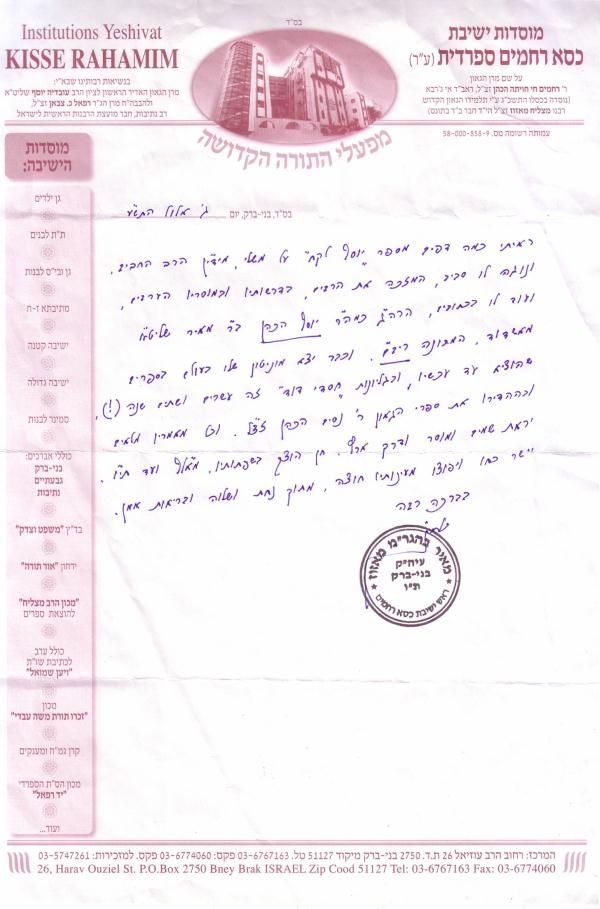 בס"ד
Institutions Yeshivat
KISSE RAHAMIM
בנשיאות רבותינו שבא"י:
מרן הגאון האדיר הראשון לציון הרב עובדיה יוסף שליט"א
ולהבבה"ח מרן הגר"ר רפאל כ. צבאן זצ"ל,
רב נתיבות, חבר מועצת הרבנות הראשית לישראל
מוסדות ישיבת
כסא רחמים ספרדית (ע"ר)
על שם מרן הגאון
ר' רחמים חי חויתה הכהן זצ"ל, ראב"ד אי ג'רבא
(נוסדה בכסלו התשכ"ג ע"י תלמידו הגאון הקדוש
רבנו מצליח מאזוז זצ"ל הי"ד חבר ב"ד בתונס)
עמותה רשומה מס. 58-000-858-9
מפעלי התורה הקדושה
מוסדות
הישיבה:
גן ילדים
ת"ת לבנים
גן ובי"ס לבנות
מתיבתא ז-ח
ישיבה קטנה
ישיבה גדולה
סמינר לבנות
כוללי אברכים:
בני-ברק
גבעתיים
נתיבות
בד"ץ "משפט וצדק"
ירחון "אור תורה"
"מכון הרב מצליח"
להוצאת ספרים
כולל ערב
לכתיבת שו"ת
"ויען שמואל"
מכון
"זכרו תורת משה עבדי"
קרן גמ"ח ומענקים
מכון הס"ת הספרדי
"יד רפאל"
ועוד...
בס"ד, בני-ברק, יום ג' אלול התש"ע
ראיתי כמה דפים מספר "יוסף לקח" על משלי, מידידי הרב החביב,
ונוגה לו סביב, המזכה את הרבים, בדרשותיו ובמוסריו הערבים,
ועוד לו בכתובים, הרה"ג כמה"ר יוסף הכהן בר' מאיר שליט"א
מאשדוד, המכונה ריב"ם. וכבר יצא מוניטין שלו בעולם בספרים
שהוציא עד עכשיו, ובגליונות "חסדי דוד" זה עשרים ושתים שנה (!),
ובההדירו את ספרי הגאון ר' נסים הכהן זצ"ל. וכל מאמריו מלאים
יראת שמים ומוסר ודרך ארץ. חן הוצק בשפתותיו, מאל"ף ועד תי"ו.
ויישר כחו ויפוצו מעינותיו חוצה, מתוך נחת ושלוה ובריאות אמן.
בברכה רבה
מאיר בהגר"מ מאזוז
עיה"ק
בני-ברק
ת"ו
ראש ישיבת כסא רחמים
המרכז: רחוב הרב עוזיאל 26 ת.ד. 2750 בני-ברק מיקוד 51127 טל. 03-6767163 פקס: 03-6774060 פקס. למזכירות: 03-5747261
26, Harav Ouziel St. P.O.Box 2750 Bney Brak ISRAEL Zip Cood 51127 Tel: 03-6767163 Fax: 03-6774060